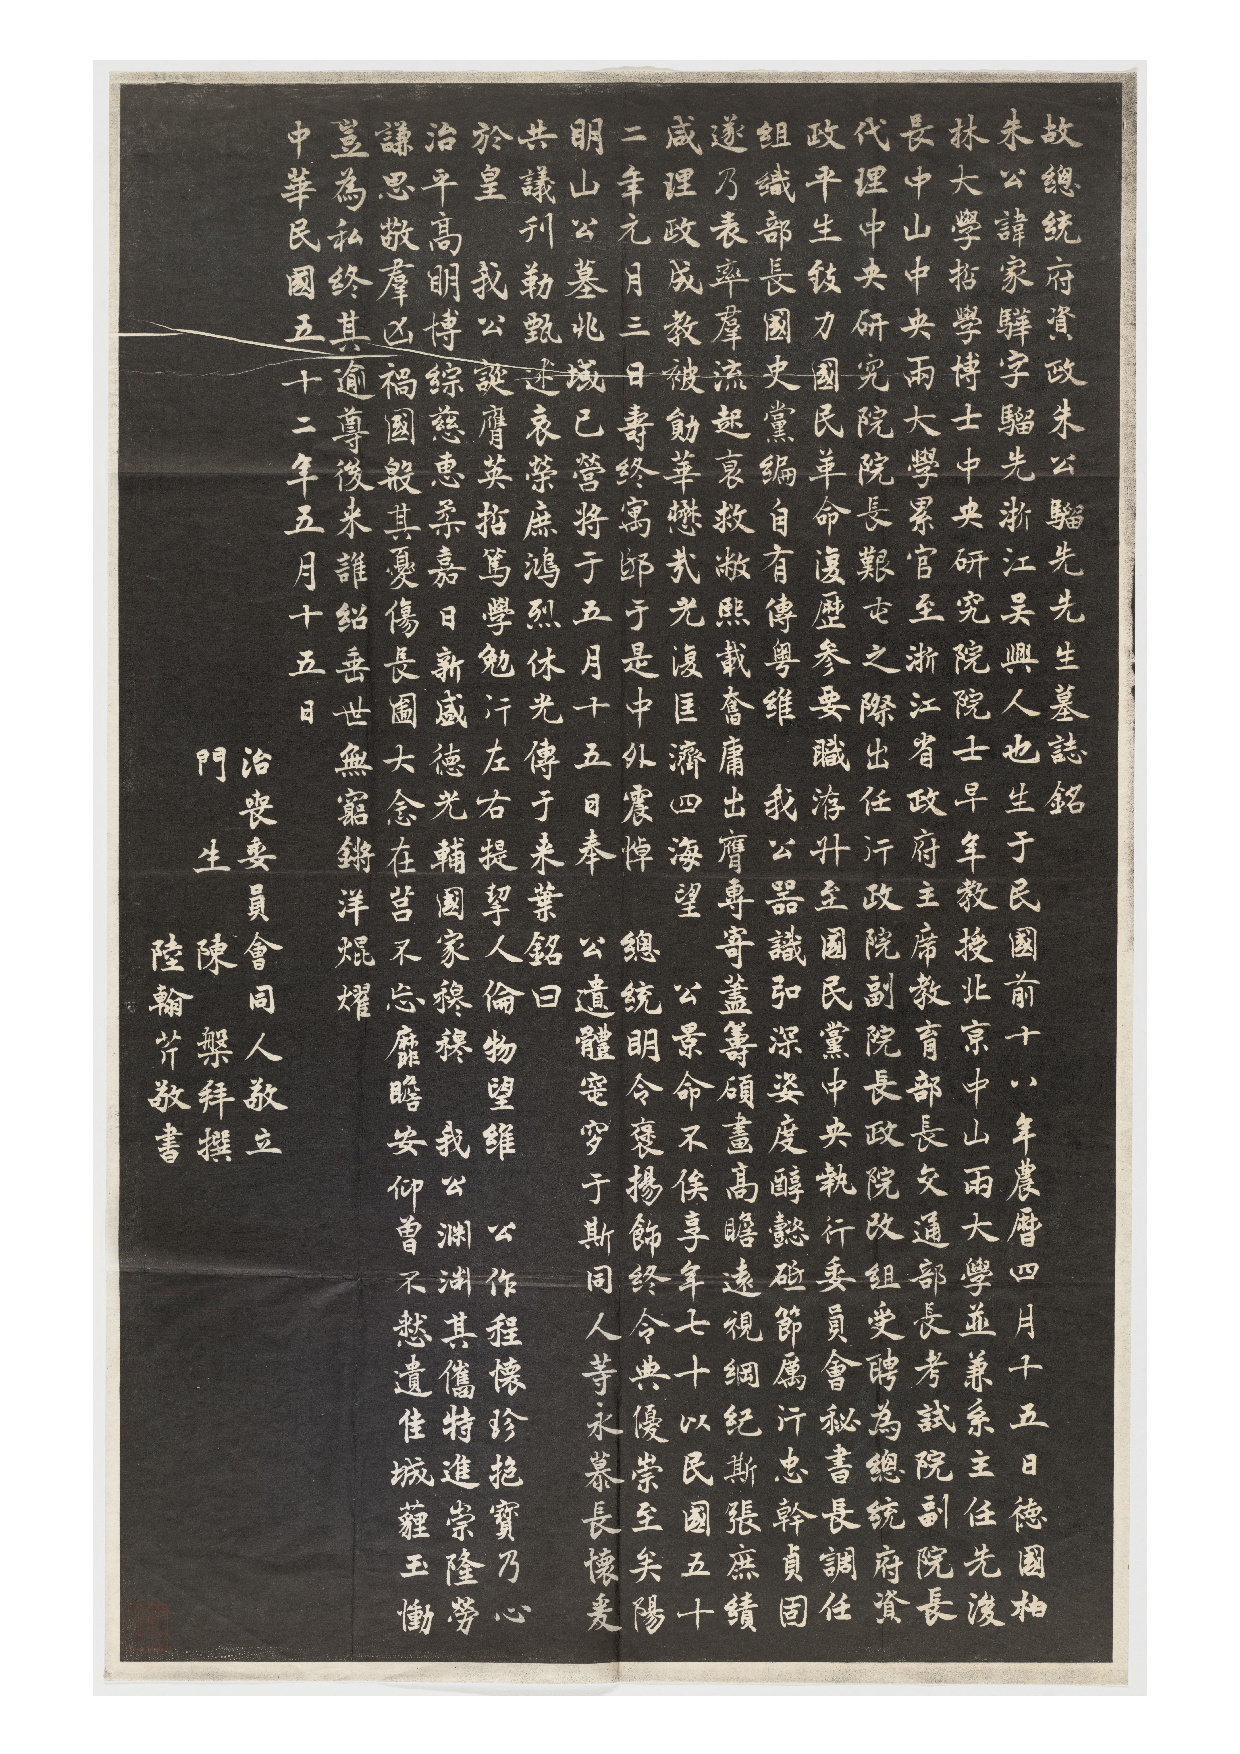 故總統府資政朱公騮先先生墓誌銘
朱公諱家驊字騮先浙江吴興人也生于民國前十八年農曆四月十五日德國柏
林大學哲學博士中央研究院院士早年教授北京中山兩大學並兼系主任先後
長中山中央兩大學累官至浙江省政府主席教育部長交通部長考試院副院長
代理中央研究院院長艱屯之際出任行政院副院長政院改組受聘為總統府資
政平生致力國民革命復歷參要職洊升至國民黨中央執行委員會秘書長調任
組織部長國史黨編自有傳粵維 我公器識弘深姿度醇懿砥節厲行忠幹貞固
遂乃表率羣流起衰救敝熙載奮庸出膺專寄藎籌碩畫高瞻遠視綱紀斯張庶績
咸理政成教被勛華懋哉光復匡濟四海望 公景命不俟享年七十以民國五十
二年元月三日壽終寓邸于是中外震悼 總統明令褒揚飾終令典優崇至矣陽
明山公墓兆域已營將于五月十五日奉 公遺體窆穸于斯同人等永慕長懷爰
共議刊勒甄述哀榮庶鴻烈休光傳于来葉銘曰
於皇 我公誕膺英哲篤學勉行左右提挈人倫物望維 公作程懷珍抱寶乃心
治平高明博綜慈惠柔嘉日新盛德光輔國家穆穆 我公淵淵其儁特進崇隆勞
謙思敬羣凶禍國殷其憂傷長圖大念在莒不忘靡瞻安仰曾不憖遺佳城薶玉慟
豈為私終其逾尊後来誰紹垂世無窮鏘洋焜燿
中華民國五十二年五月十五日
治喪委員會同人敬立
門生 陳槃拜撰
陸翰芹敬書